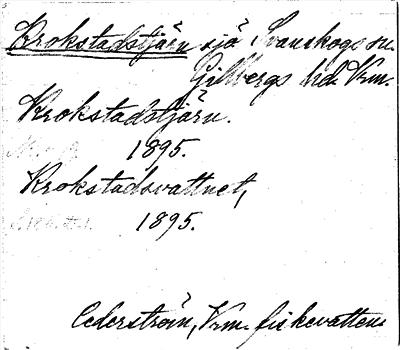 Krokstadstjärn sjö Svanskogs sn.
Gillbergs hd. Vrm.
Krokstadstjärn.
1895.
Krokstadsvattnet,
1895.
Cederström, Vrm. fiskevatten.